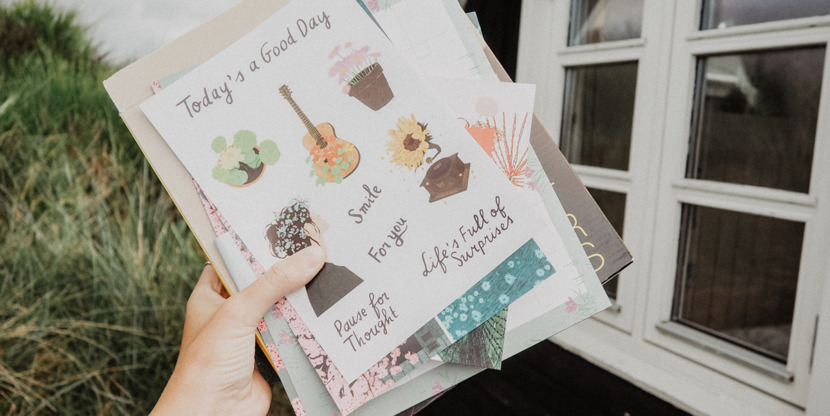 Today's a Good Day
Smile
For you
Life's Full of
Surprises
Pause for
Thought